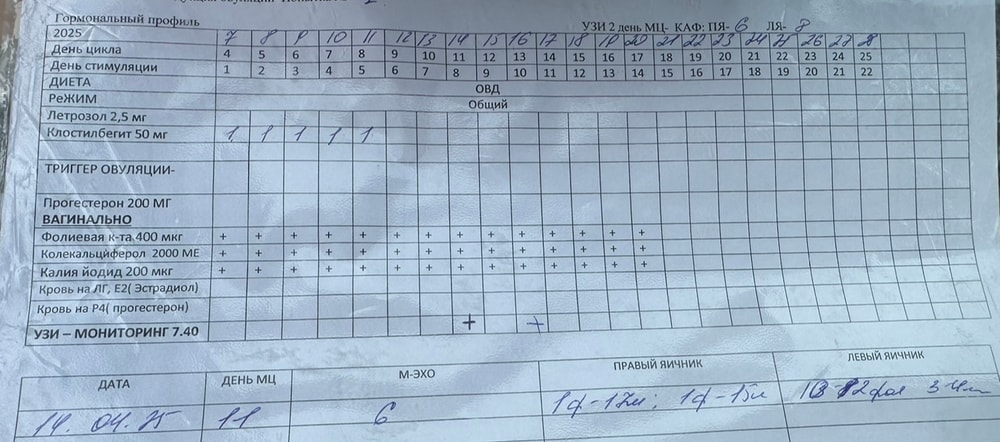 Гормональный профиль УЗИ 2 день МЦ- КАФ: ПЯ- 6 ЛЯ- 8
2025 7 8 9 10 11 12 13 14 15 16 17 18 19 20 21 22 23 24 25 26 27 28
День цикла 4 5 6 7 8 9 10 11 12 13 14 15 16 17 18 19 20 21 22 23 24 25
День стимуляции 1 2 3 4 5 6 7 8 9 10 11 12 13 14 15 16 17 18 19 20 21 22
ДИЕТА ОВД
РеЖИМ Общий
Летрозол 2,5 мг
Клостилбегит 50 мг 1 1 1 1 1
ТРИГГЕР ОВУЛЯЦИИ-
Прогестерон 200 МГ
ВАГИНАЛЬНО
Фолиевая к-та 400 мкг + + + + + + + + + + + + + +
Колекальциферол 2000 МЕ + + + + + + + + + + + + + +
Калия йодид 200 мкг + + + + + + + + + + + + + +
Кровь на ЛГ, Е2( Эстрадиол)
Кровь на Р4( прогестерон)
УЗИ – МОНИТОРИНГ 7.40 + +
ДАТА ДЕНЬ МЦ М-ЭХО ПРАВЫЙ ЯИЧНИК ЛЕВЫЙ ЯИЧНИК
14. 04. 25 11 6 1ф-17мм; 1ф-15мм